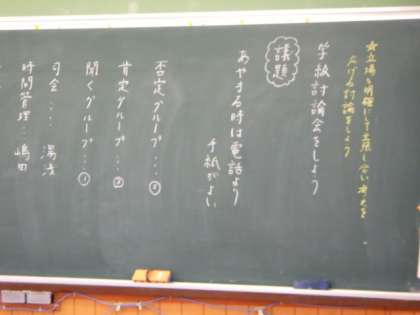 ☆立場を明確にして主張し合い考えを
広げる討論をしよう
学級討論会をしよう
議題
あやまる時は電話より
手紙がよい
否定グループ…③
肯定グループ…②
聞くグループ…①
司会…湯浅
時間管理…嶋田